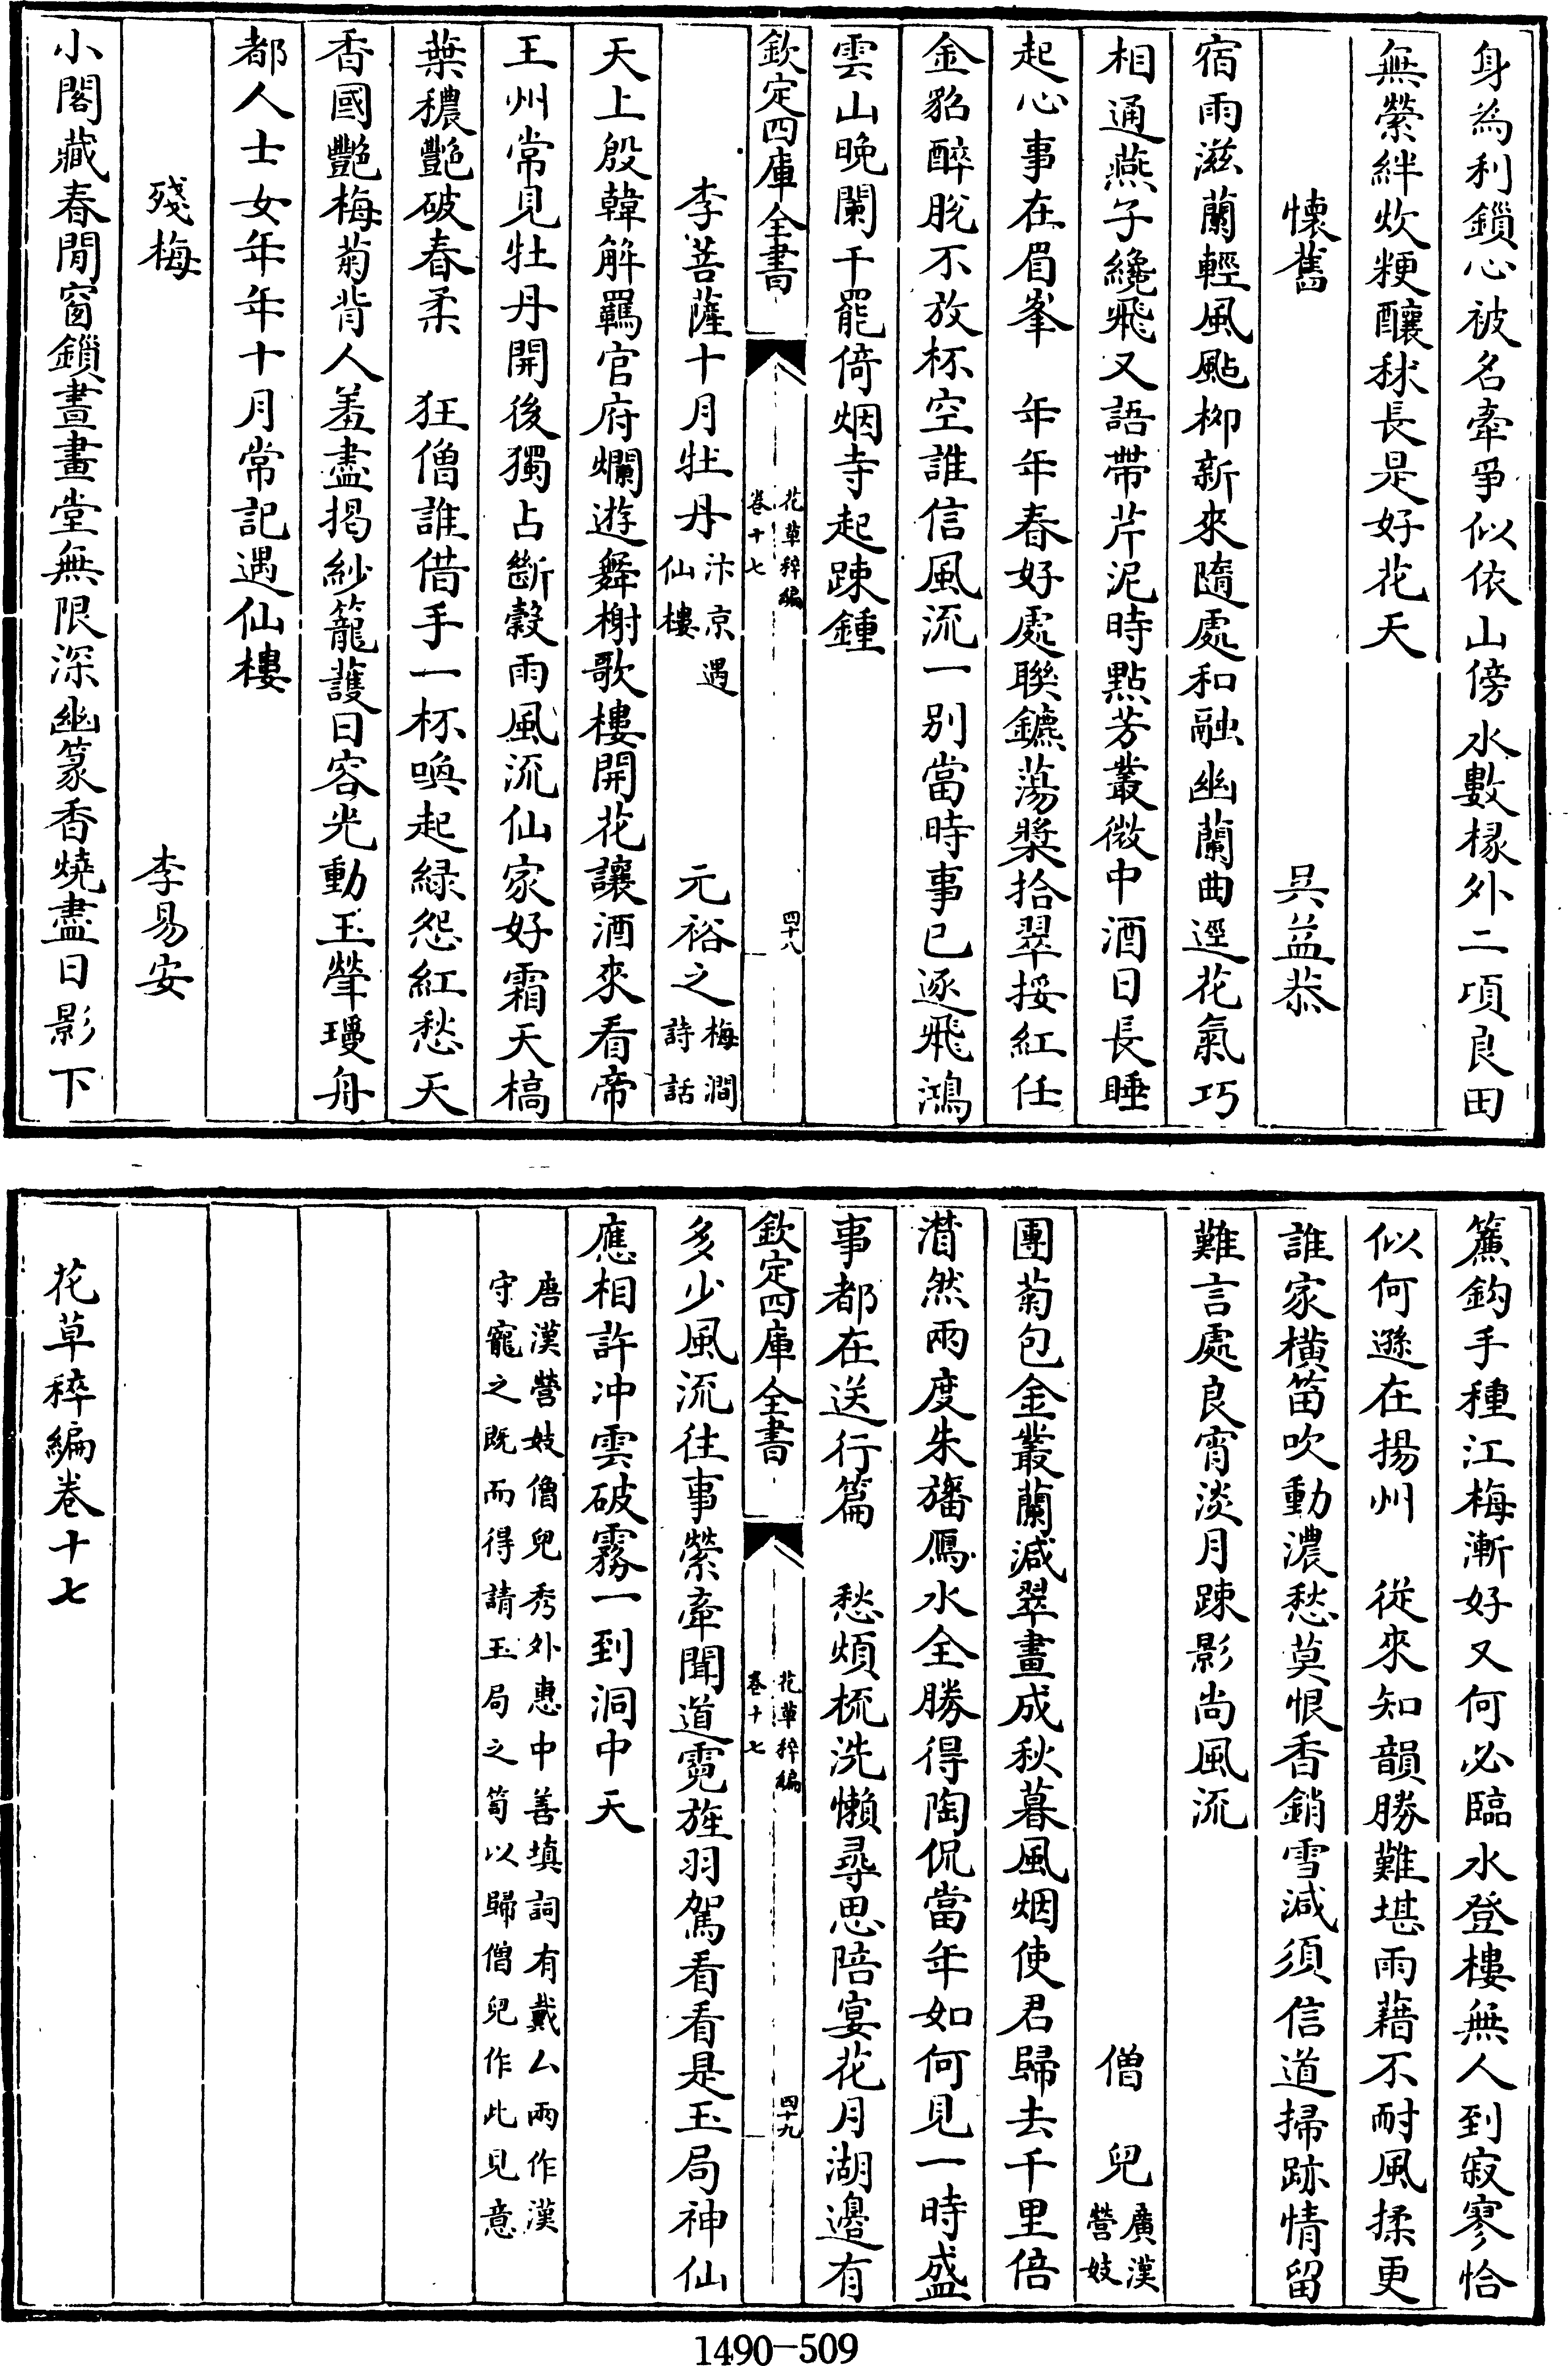 身為利鎖心被名牽爭似依山傍水數椽外二項良田
無縈絆炊粳釀秫長是好花天
懷舊　吳益恭
宿雨滋蘭輕風颭栁新來隨處和融幽蘭曲逕花氣巧
相通燕子纔飛又語帶芹泥時點芳叢微中酒日長睡
起心事在眉峯　年年春好處聯鑣蕩槳拾翠挼紅任
金貂醉脫不放杯空誰信風流一別當時事已逐飛鴻
雲山晚闌干罷倚烟寺起踈鍾
欽定四庫全書　花草稡編　卷十七　四十八
李菩薩十月牡丹汴京遇仙樓　元裕之梅澗詩話
天上殷韓解羈官府爛遊舞榭歌樓開花讓酒來看帝
王州常見牡丹開後獨占斷穀雨風流仙家好霜天槁
葉穠艷破春柔　狂僧誰借手一杯喚起緑怨紅愁天
香國艷梅菊背人羞盡揭紗籠護日容光動玉斝瓊舟
都人士女年年十月常記遇仙樓
殘梅　李易安
小閣藏春閒窗鎖晝畫堂無限深幽篆香燒盡日影下
簾鈎手種江梅漸好又何必臨水登樓無人到寂寥恰
似何遜在揚州　從來知韻勝難堪雨藉不耐風揉更
誰家橫笛吹動濃愁莫恨香銷雪減須信道掃跡情留
難言處良宵淡月踈影尚風流
僧兒廣漢營妓
團菊包金叢蘭減翠畫成秋暮風烟使君歸去千里倍
潸然兩度朱旛鴈水全勝得陶侃當年如何見一時盛
事都在送行篇　愁煩梳洗懶尋思陪宴花月湖邊有
欽定四庫全書　花草稡編　卷十七　四十九
多少風流往事縈牽聞道霓旌羽駕看看是玉局神仙
應相許冲雲破霧一到洞中天
唐漢營妓僧兒秀外惠中善填詞有戴厶兩作漢
守寵之既而得請玉局之筍以歸僧兒作此見意
花草稡編卷十七
1490—509